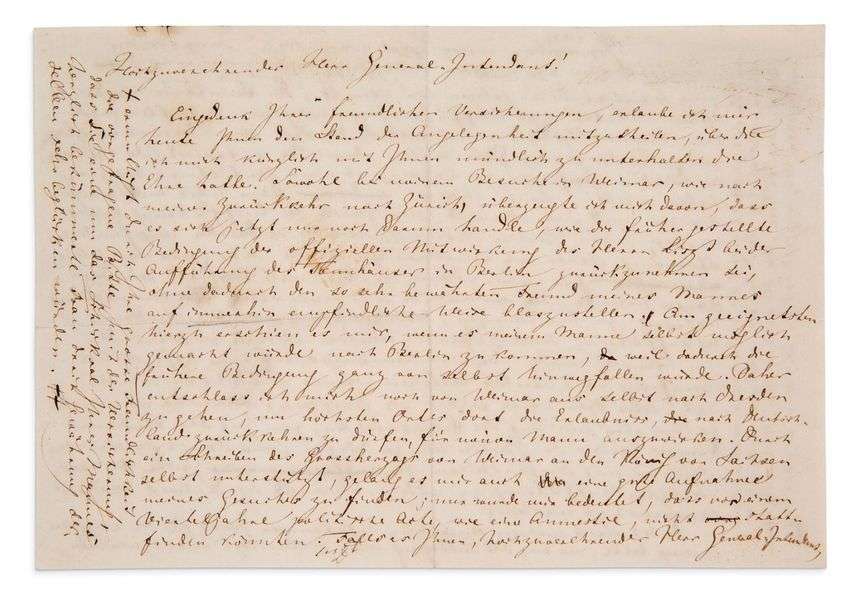 Hochzuverehrender Herr General-Intendant!
Eingedenk Ihrer freundlichen Versicherungen, erlaube ich mir
heute Ihnen den Stand der Angelegenheit mitzutheilen, über die
ich mich kürzlich mit Ihnen mündlich zu unterhalten die
Ehre hatte. Sowohl bei meinem Besuche in Weimar, wie nach
meiner Zurückkehr nach Zürich, überzeugte ich mich davon, dass
es sich jetzt nur noch darum handle, wie die früher gestellte
Bedingung der offiziellen Mitwirkung des Herrn Liszt bei der
Aufführung des Tannhäuser in Berlin zurückzunehmen sei,
ohne dadurch den so sehr bewährten Freund meines Mannes
auf immerhin empfindliche Weise bloszustellen. Am geeignetsten
hierzu erschien es mir, wenn es meinem Manne selbst möglich
gemacht würde nach Berlin zu kommen, weil dadurch die
frühere Bedingung ganz von selbst hinwegfallen würde. Daher
entschloss ich mich noch von Weimar aus selbst nach Dresden
zu gehen, um höchsten Ortes dort die Erlaubniss, nach Deutsch-
land zurückkehren zu dürfen, für meinen Mann auszuwirken. Durch
ein Schreiben des Grossherzogs von Weimar an den König von Sachsen
selbst unterstützt, gelang es mir auch eine gute Aufnahme
meines Gesuches zu finden; nur wurde mir bedeutet, dass vor einem
Vierteljahre politische Acte, wie eine Amnestie, nicht statt
finden könnten. Falls es Ihnen, hochzuverehrender Herr General-Intendant,
+ ermuthigt durch Ihre grosse Freundlichkeit
die vorgetragene Bitte, mit der Versicherung,
dass Sie eine um das Schicksal Ihres Mannes
herzlich bekümmerte Frau durch Gewährung der
selben sehr beglücken würden.